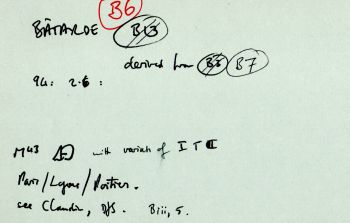 B6
BÂTARDE B13
derived from B8 B7
94: 2.6:
M43 with variants of I T C
Paris/Lyons/Poitiers.
see Claudin, DJS. Biii, 5.